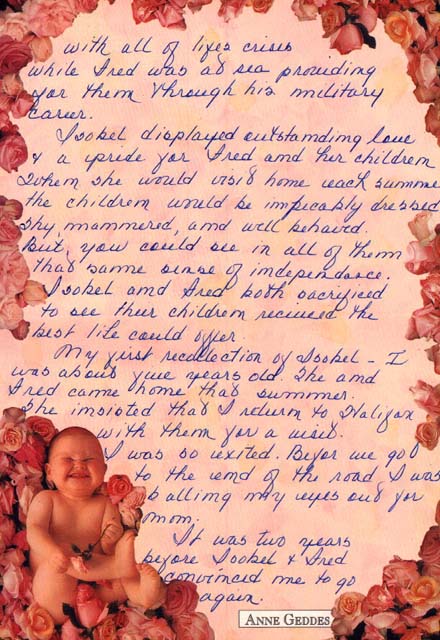 with all of lifes crisis
while Fred was at sea providing
for them through his military
career.
Isobel displayed outstanding love
& a pride for Fred and her children
When she would visit home each summer
the children would be impecably dressed
shy, mannered, and well behaved.
But, you could see in all of them
that same sense of independance.
Isobel and Fred both sacrificed
to see their children recieved the
best life could offer.
My first recollection of Isobel - I
was about five years old. She and
Fred came home that summer.
She insisted that I return to Halifax
with them for a visit.
I was so exited. Befor we got
to the end of the road, I was
balling my eyes out for
mom.
It was two years
before Isobel & Fred
convinced me to go
again.
ANNE GEDDES